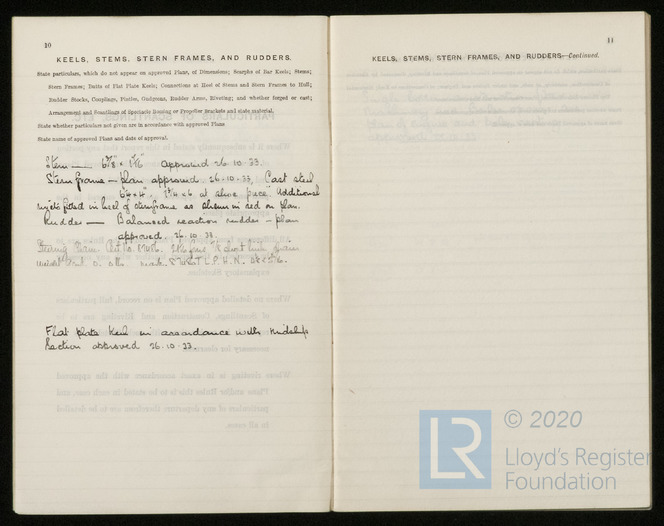 10
KEELS, STEMS, STERN FRAMES, AND RUDDERS.
State particulars, which do not appear on approved Plans, of Dimensions; Scarphs of Bar Keels; Stems;
Stern Frames; Butts of Flat Plate Keels; Connections at Heel of Stems and Stern Frames to Hull;
Rudder Stocks, Couplings, Pintles, Gudgeons, Rudder Arms, Riveting; and whether forged or cast;
Arrangement and Scantlings of Spectacle Bossing or Propeller Brackets and state material.
State whether particulars not given are in accordance with approved Plans
State name of approved Plans and date of approval.
Stem — Approved 26.10.33.
Stern frame — plan approved 26.10.33. Cast steel
at shoe piece. Additional
fitted in heel of sternframe as shewn in red on plan.
Rudder — Balanced reaction rudder – plan
approved 26.10.33
Flat plate keel in accordance with Midship
Section approved 26.10.33.
11
KEELS, STEMS, STERN FRAMES, AND RUDDERS—Continued.
LR
© 2020
Lloyd's Register
Foundation